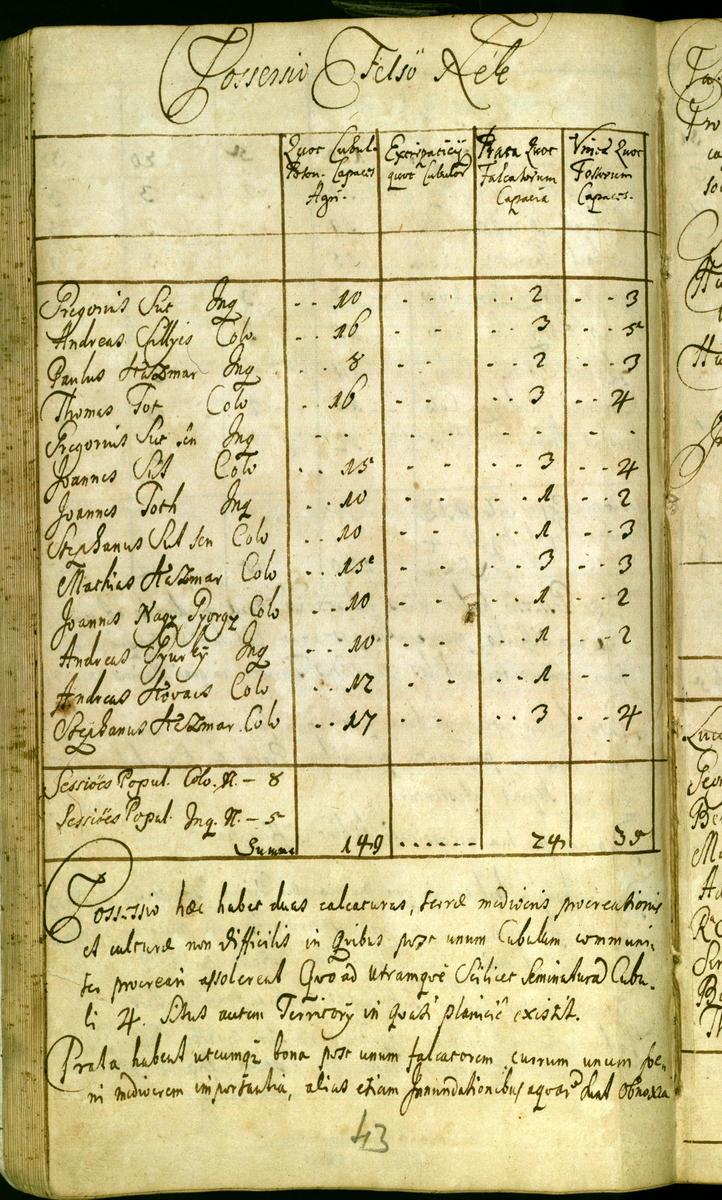 Possessio Felsö Néle
Quot Cubul. Poson. Capaces Agri. Exstirpaticÿ quot Cubulor Prata Quot Falcatorum Capacia Vinea Quot Fossorum Capaces.
Gregorius Sut Inq .. 10 . - - .. 2 . - - 3
Andreas Sillyis Colo .. 16 - - .. 3 .. 5
Paulus Haszmar Inq .. 8 - - .. 2 .. 3
Thomas Tot Colo .. 16 - - .. 3 .. 4
Gregorius Sut sen Inq
Joannes Sut Colo .. 15 - - .. 3 .. 4
Joannes Toth Inq .. 10 - - .. 1 .. 2
Stephanus Sut sen Colo .. 10 - - .. 1 .. 3
Mathias Haszmar Colo .. 15 - - .. 3 .. 3
Joannes Nagy Györgÿ Colo .. 10 - - .. 1 .. 2
Andreas Gyurky Inq .. 10 - - .. 1 .. 2
Andreas Kovacs Colo .. 12 - - .. 1 - -
Stephanus Haszmar Colo .. 17 - - .. 3 .. 4
Sessiões Popul. Colo. N. – 8
Sessiões Popul. Inq. N. – 5
Summa 149 ...... 24 35
Possessio hæc habet duas calcaturas, terræ mediocris procreationis
et culturæ non difficilis in Quibus post unum Cubulum communi-
ter procreari assolerent Quoad Utramque Scilicet Seminaturã Cubu-
li 4. Situs autem Territorÿ in quasi planicie existit.
Prata habent utcumque bona post unum falcatorem currum unum foe-
ni mediocrem importantia, alias etiam Innundationibus aquarũ sunt obnoxia
43